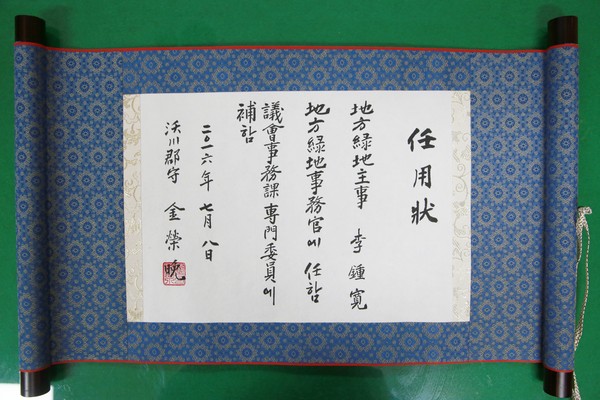 任用狀
地方綠地主事 李鍾寬
地方綠地事務官에 任함
議會事務課 專門委員에
補함
二〇一六年 七月 八日
沃川郡守 金榮晩